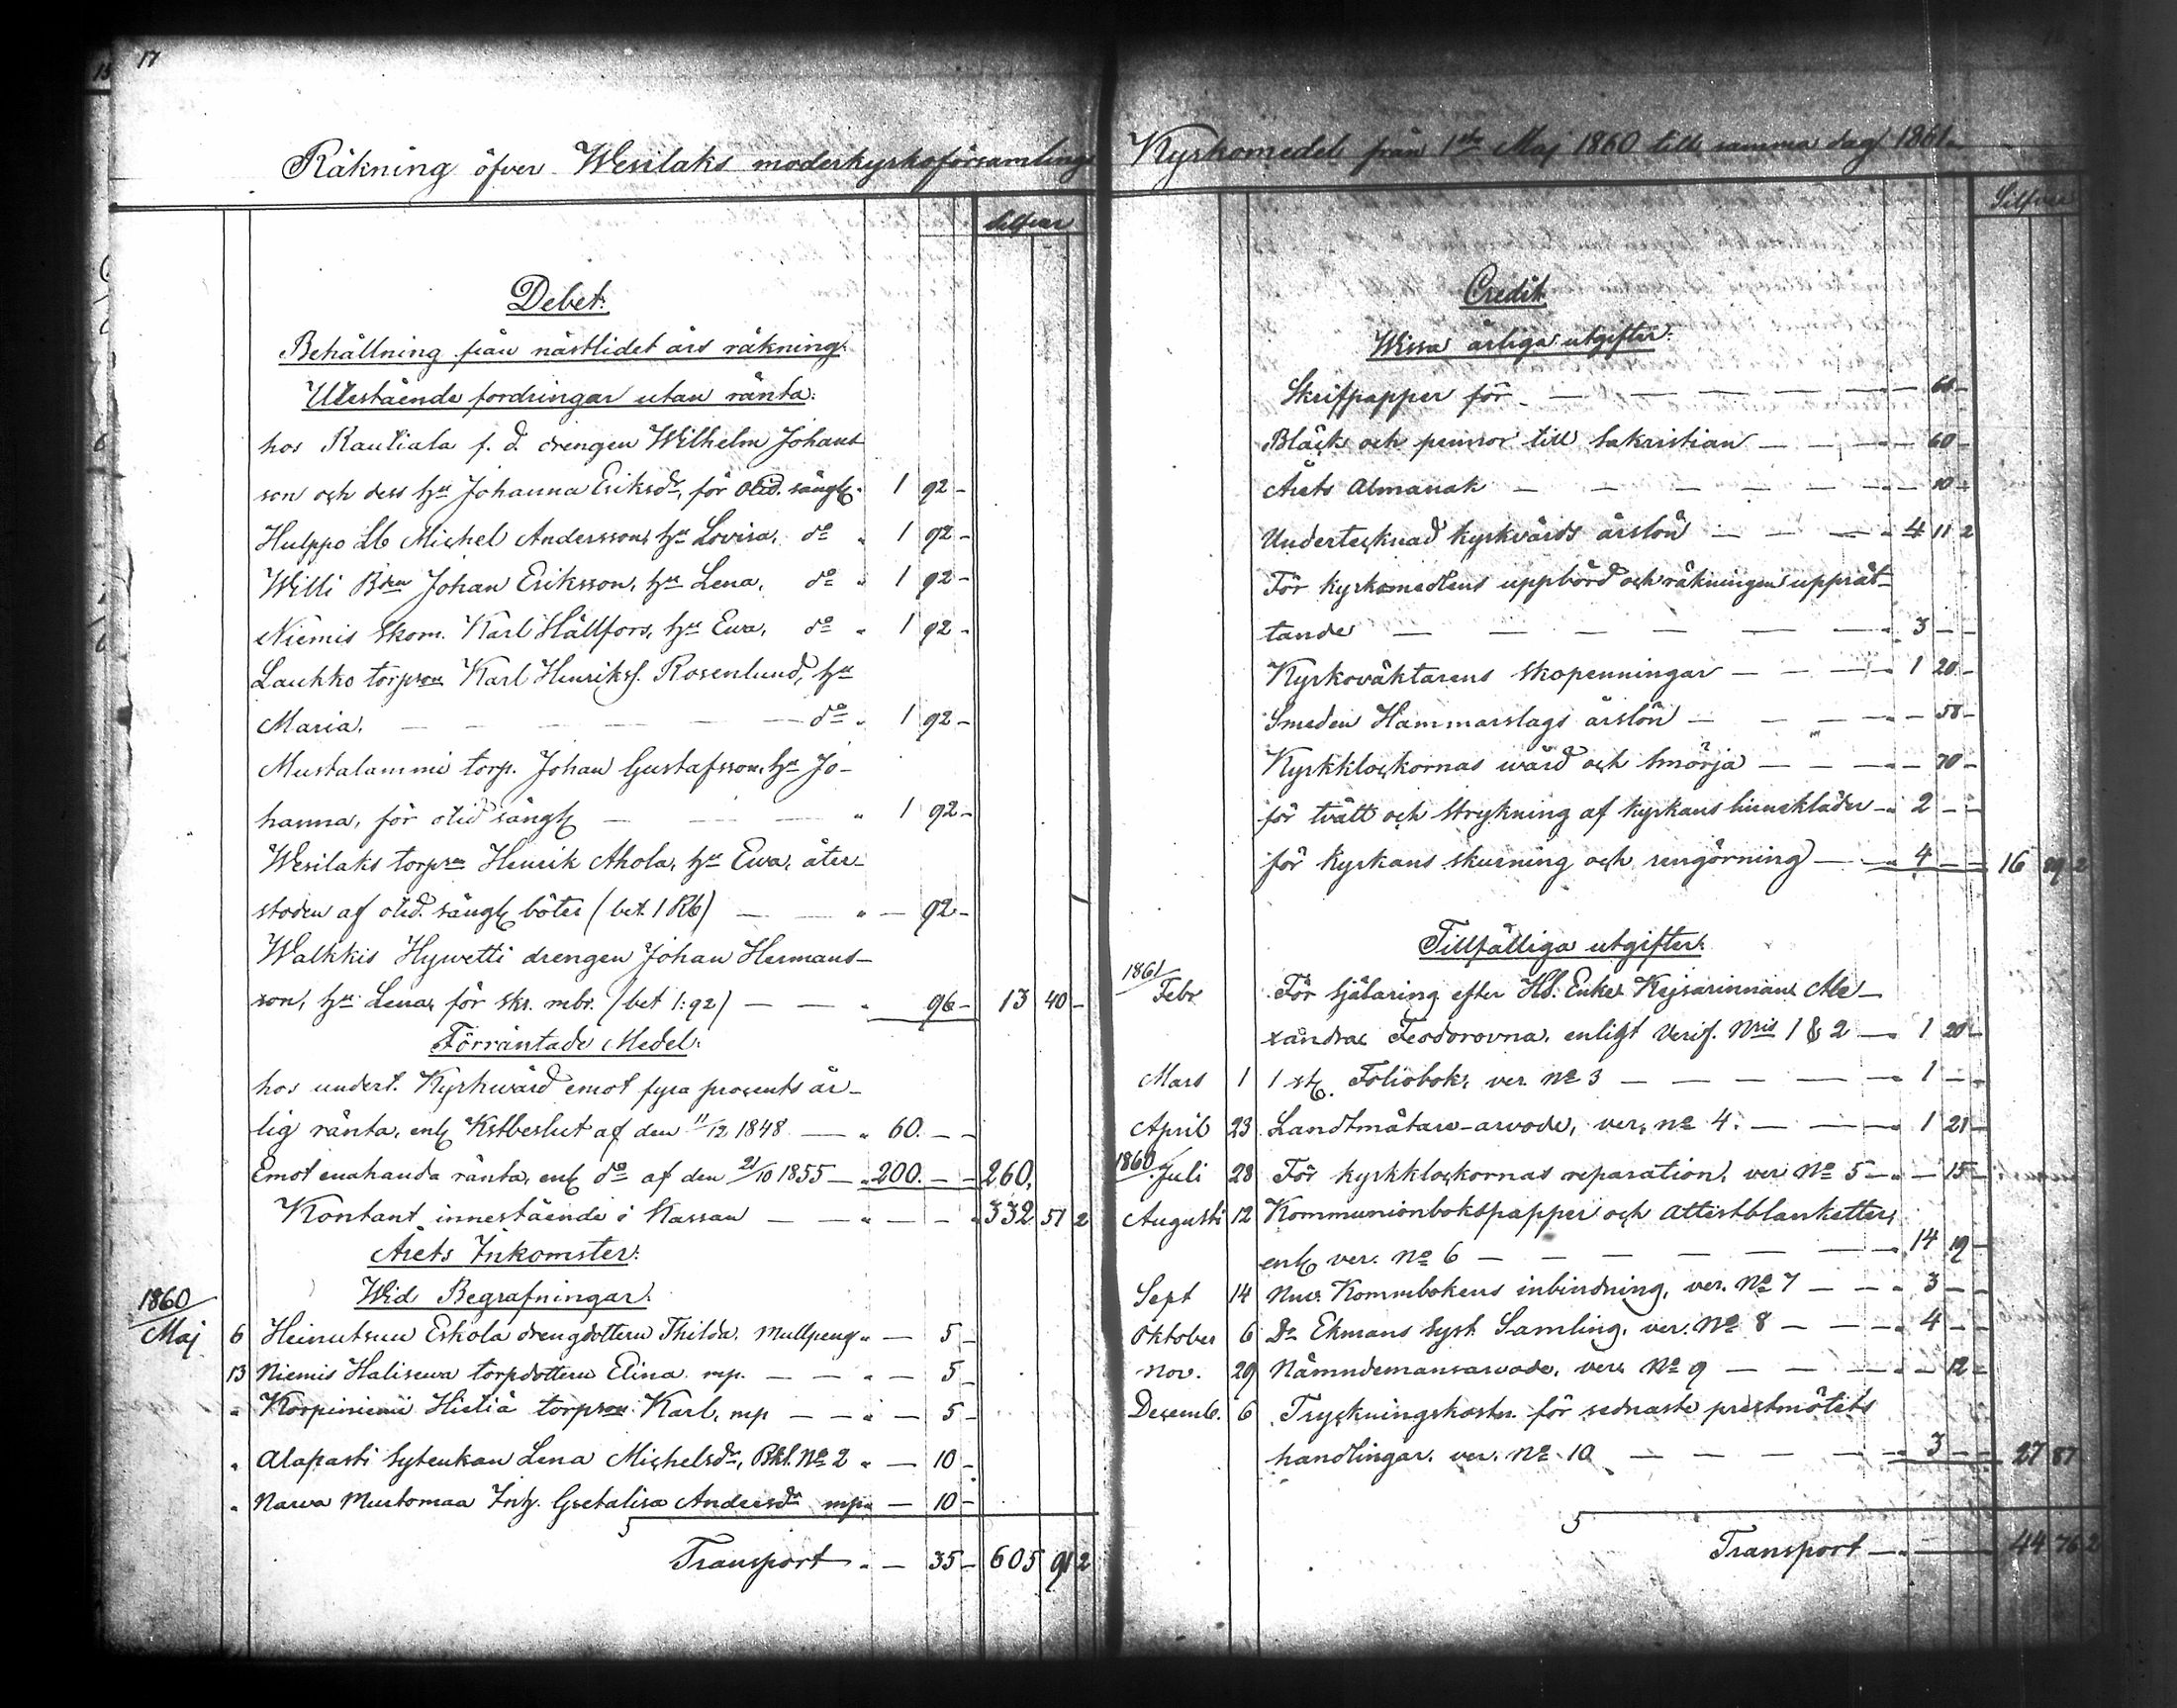 17
Räkning öfver Wesilaks moderkyrkoförsamlings Kyrkomedel från 1sta Maj 1860 till samma dag 1861.
Silfver
Debet.
Behållning från nästlidet års räkning.
Utestående fordringar utan ränta.
hos Rautiala f. d. drengen Wilhelm Johans-
son och dess hu Johanna Eriksdr, för otid. sängl. 1 92 -
Hulppo Lb Michel Andersson, hu Lovisa, do " 1 92 -
Willi Bdn Johan Eriksson, hu Lena, do " 1 92 -
Niemis Skom. Karl Hällfors, hu Ewa, do " 1 92 -
Laukko torpson Karl Henrikss. Rosenlund, hu
Maria. — — — — — do " 1 92 -
Mustalammi torp. Johan Gustafsson, hu Jo-
hanna, för otid sängl — — — " 1 92 -
Wesilaks torpson Henrik Ahola, hu Ewa, åter-
stoden af otid. sängl böter (bet. 1 Rb) — — " — 92 -
Walkkis Hywetti drengen Johan Hermans-
son, hu Lena, för skr. mbr. (bet 1:92) — — " 96 - 13 40 -
Förräntade Medel.
hos undert. Kyrkwärd emot fyra procents år-
lig ränta, enl Kstbeslut af den 11/12 1848 — " 60. - -
Emot enahanda ränta, enl do af den 21/10 1855 — " 200. - - 260.
Kontant innestående i Kassan — — " — - " 332 51 2
Årets Inkomster.
Wid Begrafningar.
1860
Maj 6 Heinutsuu Eskola drengdottern Thilda. Mullpeng " — 5 -
13 Niemis Haliseva torpdottern Elina. mp. — — " — 5 -
" Korpiniemi Hietiä torpson Karl, mp — — " — 5 -
" Alapasti Sytenkan Lena Michelsdr, Bkl. No 2 " — 10 -
" Narva Murtomaa Inh. Gretalisa Andersdr mp " — 10 -
Transport " — 35 - 605 91 2
Silfver
Credit
Wissa årliga utgifter.
Skrifpapper för — — — — — — " — 60 -
Bläck och pennor till Sakristian — — — " — 60 -
Årets Almanak — — — — — — " — 10 -
Undertecknad Kyrkvärds årslön — — — " 4 11 2
För kyrkomedlens uppbörd och räkningens upprät-
tande — — — — — — — " 3 - -
Kyrkoväktarens skopenningar — — — " 1 20 -
Smeden Hammarslags årslön — — — " — 58 -
Kyrkklockornas wård och smörja — — — " — 70 -
för tvätt och strykning af kyrkans linnekläder — " 2 - -
för kyrkans skurning och rengörning — — " 4 - - 16 89 2
Tillfälliga utgifter.
1861
Febr För själaring efter HS. Enke Kejsarinnan Ale-
xandra Feodorovna, enligt Verif. Nris 1 & 2 — " 1 20 -
Mars 1 1 st. Foliobok, ver. No 3 — — — — — " 1 - -
April 23 Landtmätare-arvode, ver. No 4. — — — " 1 21 -
1860
Juli 28 För kyrkklockornas reparation, ver No 5 — " — 15 -
Augusti 12 Kommunionbokspapper och attestblanketter,
enl ver. No 6 — — — — — — — " 14 19 -
Sept 14 Nuv. Kommbokens inbindning, ver. No 7 — — " 3 - -
Oktober 6 Dr Ekmans Syst. Samling, ver. No 8 — — — " 4 - -
Nov. 29 Nämndemansarvode, ver. No 9 — — — — " — 12 -
Decemb. 6 Tryckningskostn. för sednaste prestmötets
handlingar. ver. No 10 — — — — — " 3 - - 27 87
Transport — " — 44 76 2